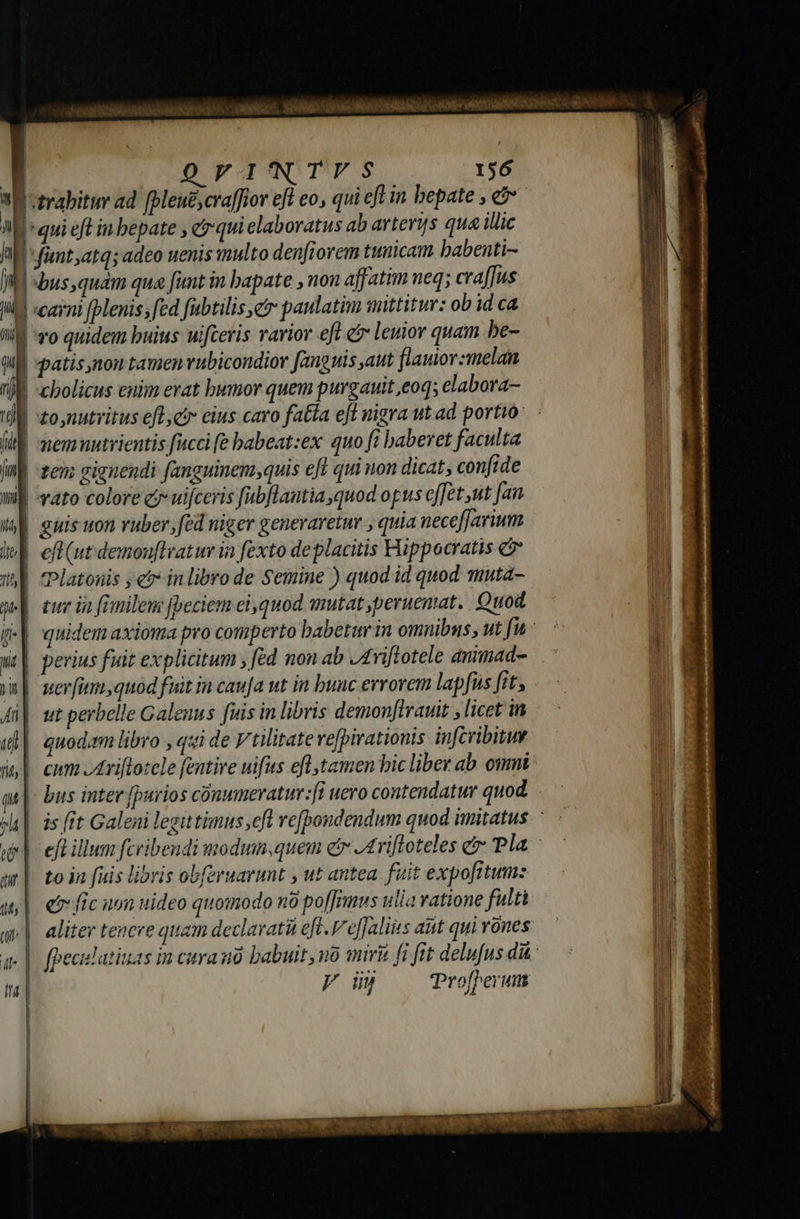 QVINTVS 156
trahitur ad ſplenẽ, craſſior eſt eo, qui eſt in hepate, &
qui eſt in hepate, & qui elaboratus ab arterijs quæ illic
ſunt, atq; adeo uenis multo denſiorem tunicam habenti-
bus, quàm quæ ſunt in hapate, non affatim neq; craſſus
carni ſplenis, ſed ſubtilis, & paulatim mittitur: ob id ca
ro quidem huius uiſceris rarior eſt & leuior quam he-
patis, non tamen rubicondior ſanguis, aut flauior: melan
cholicus enim erat humor quem purgauit, eoq; elabora-
to, nutritus eſt, & eius caro facta eſt nigra ut ad portio
nem nutrientis ſucci ſe habeat: ex quo ſi haberet faculta
tem gignendi ſanguinem, quis eſt qui non dicat, conſide
rato colore & uiſceris ſubſtantia, quod opus eſſet, ut ſan
guis non ruber, ſed niger generaretur, quia neceſſarium
eſt (ut demonſtratur in ſexto de placitis Hippocratis &
Platonis, & in libro de Semine) quod id quod muta-
tur in ſimilem ſpeciem ei, quod mutat, perueniat. Quod
quidem axioma pro comperto habetur in omnibus, ut ſu
perius fuit explicitum, ſed non ab Ariſtotele animad-
uerſum, quod fuit in cauſa ut in hunc errorem lapſus ſit,
ut perbelle Galenus ſuis in libris demonſtrauit, licet in
quodam libro, qui de Vtilitate reſpirationis inſcribitur
cum Ariſtotele ſentire uiſus eſt, tamen hic liber ab omni
bus inter ſpurios cõnumeratur: ſi uero contendatur quod
is ſit Galeni legittimus, eſt reſpondendum quod imitatus
eſt illum ſcribendi modum, quem & Ariſtoteles & Pla
to in ſuis libris obſeruarunt, ut antea fuit expoſitum:
& ſic non uideo quomodo nõ poſſimus ulla ratione fulti
aliter tenere quam declaratũ eſt. Veſſalius aũt qui rões
ſpeculatiuas in cura nõ habuit, nõ mirũ ſi ſit deluſus dũ
V iiij Proſperum